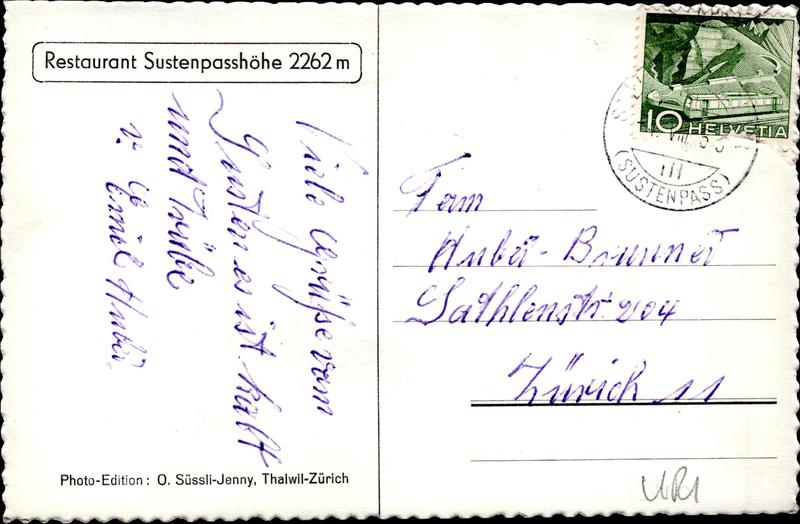 Restaurant Sustenpasshöhe 2262 m
Viele Grüße vom
Susten es ist kalt
und trübe
v. E
Emil Huber
Photo-Edition: O. Süssli-Jenny, Thalwil-Zürich
10 HELVETIA
VIII
(SUSTENPASS)
Fam
Huber-Brunner
Kathlenstr 204
Zürich 11
URI